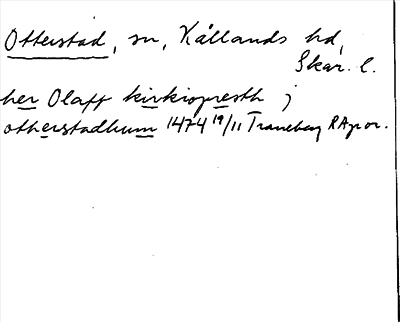 Otterstad, sn, Kållands hd,
Skar. l.
her Olaff kirkiopresth j
otherstadhum 1474 19/11 Traneberg RAp or.